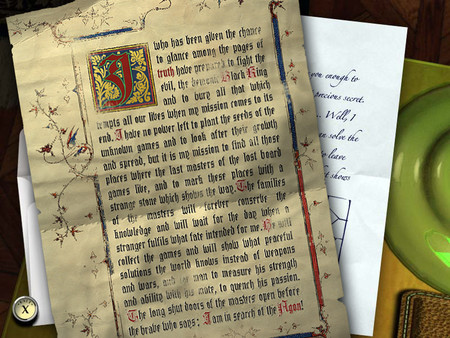 I who has been given the chance
to glance among the pages of
truth have prepared to fight the
evil, the demonic Black King
and to bury all that which
tempts all our likes when my mission comes to its
end. I have no power left to plant the seeds of the
unknown games and to look after their growth
and spread, but it is my mission to find all those
places where the last masters of the lost board
games live, and to mark these places with a
strange stone which shows the way. The families
of the masters will forever conserve the
knowledge and will wait for the day when a
stranger fulfils what fate intended for me. He will
collect the games and will show what peaceful
solutions the world knows instead of weapons
and wars, and man to measure his strength
and ability with his mate, to quench his passion.
The long shut doors of the masters open before
the brave who says: I am in search of the Agon!
you enough to
precious secret.
... Well, I
can solve the
to leave
shows
X